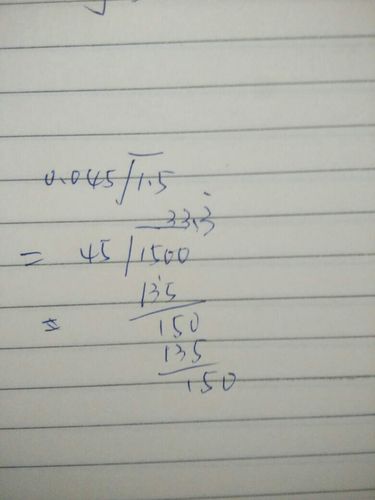 0.045/1.5
33.3̇
= 45/1500
135
= 150
135
150